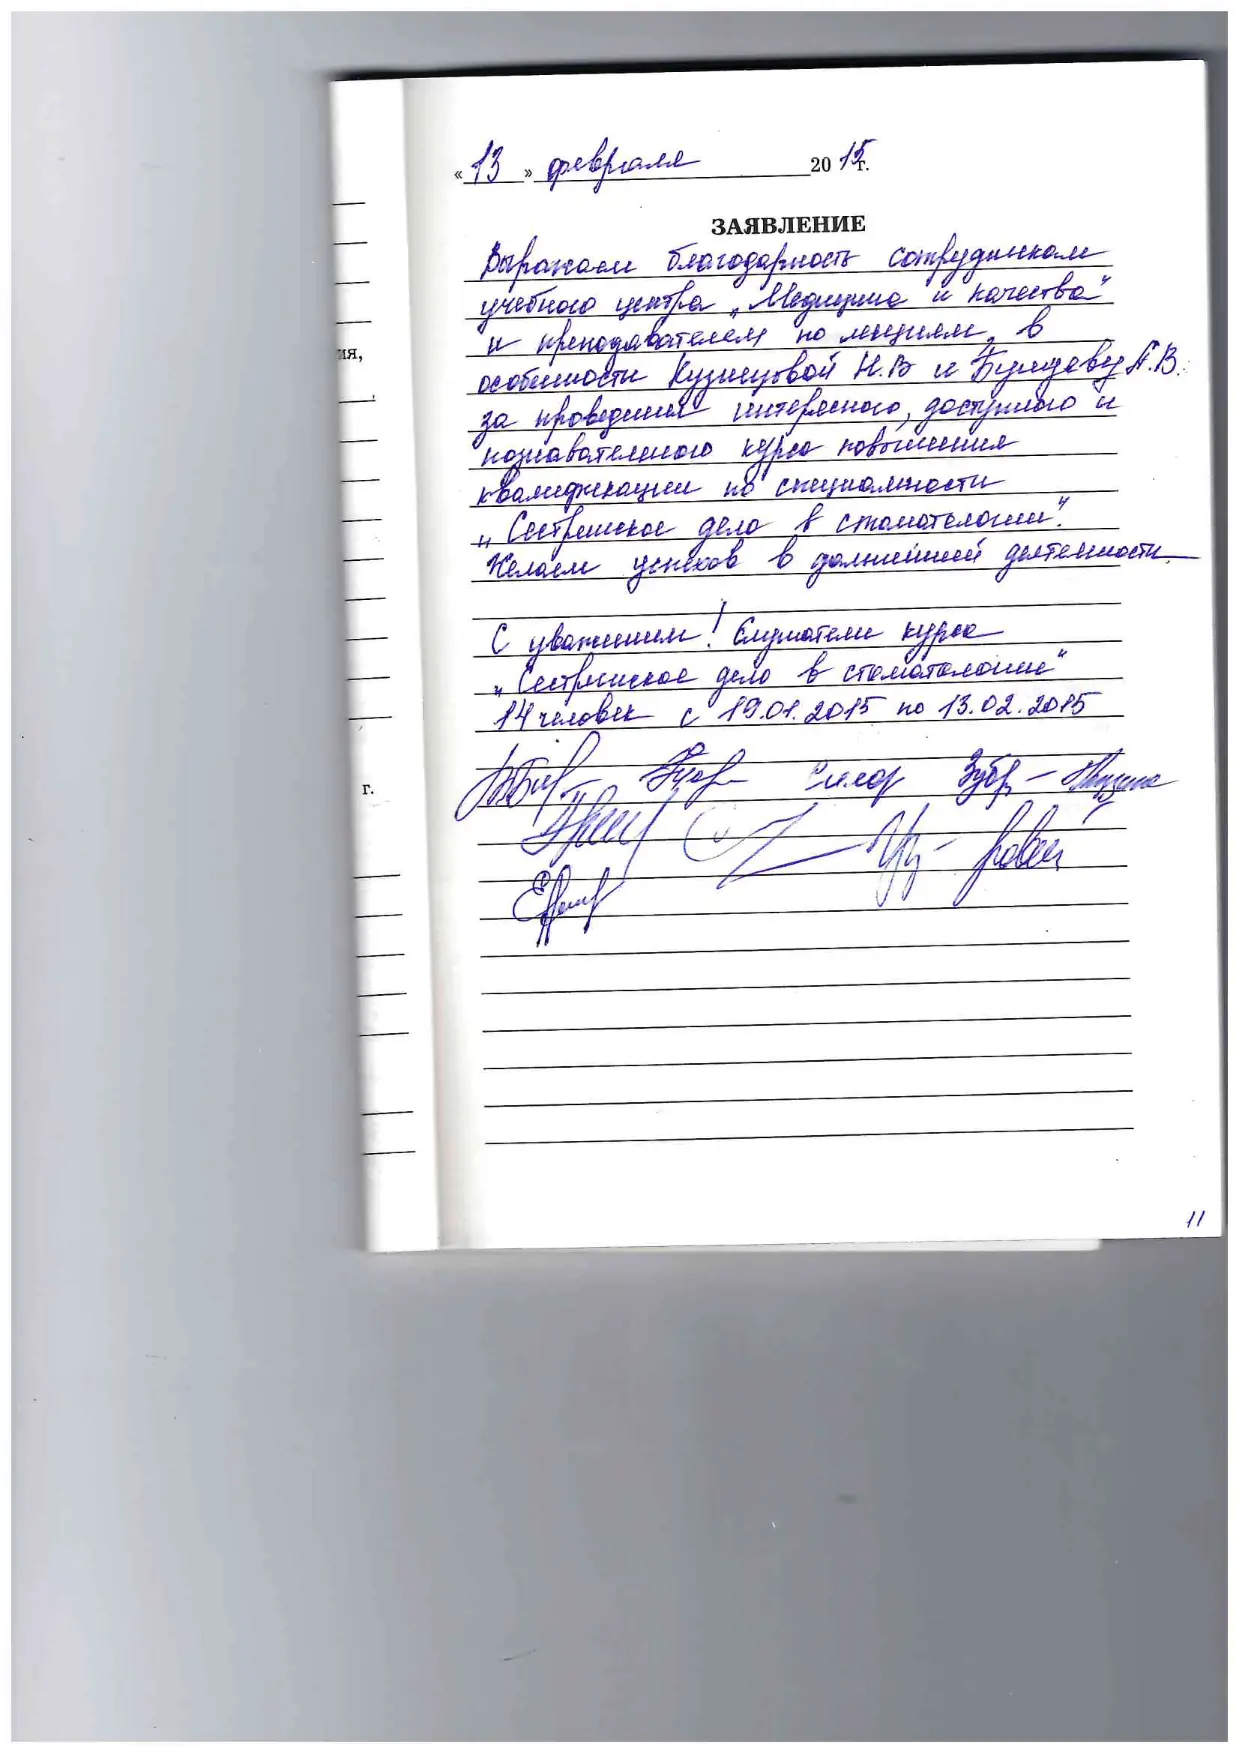 « 13 » февраля 2015 г.
ЗАЯВЛЕНИЕ
Выражаем благодарность сотрудникам
учебного центра „Медицина и качество"
и преподавателем по лекциям, в
особенности Кузнецовой Н.В и А.В.
за проведение интересного, доступного и
познавательного курса повышения
квалификации по специальности
„Сестринское дело в стоматологии".
Желаем успехов в дальнейшей деятельности
С уважением! Слушатели курса
„Сестринское дело в стоматологии"
14 человек с 19.01.2015 по 13.02.2015
ия,
г.
11